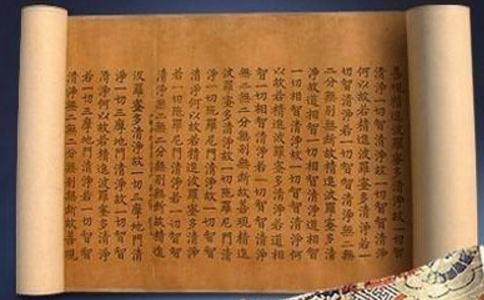 善現精進波羅蜜多清淨故一切智
清淨一切智清淨故一切智智清淨
何以故若精進波羅蜜多清淨若一
切智清淨若一切智智清淨無二無
二分無別無斷故善現精進波羅蜜多清
淨故道相智一切相智清淨道相智
一切相智清淨故一切智智清淨何
以故若精進波羅蜜多清淨若道相
智一切相智清淨若一切智智清淨
無二無二分無別無斷故善現精進
波羅蜜多清淨故一切陀羅尼門清
淨一切陀羅尼門清淨故一切智智
若一切陀羅尼門清淨若一切智智
清淨無二無二分無別無斷故善現精進
波羅蜜多清淨故一切三摩地門清
淨一切三摩地門清淨故一切智智
清淨何以故若精進波羅蜜多清淨
若一切三摩地門清淨若一切智智
清淨無二無二分無別無斷故善現